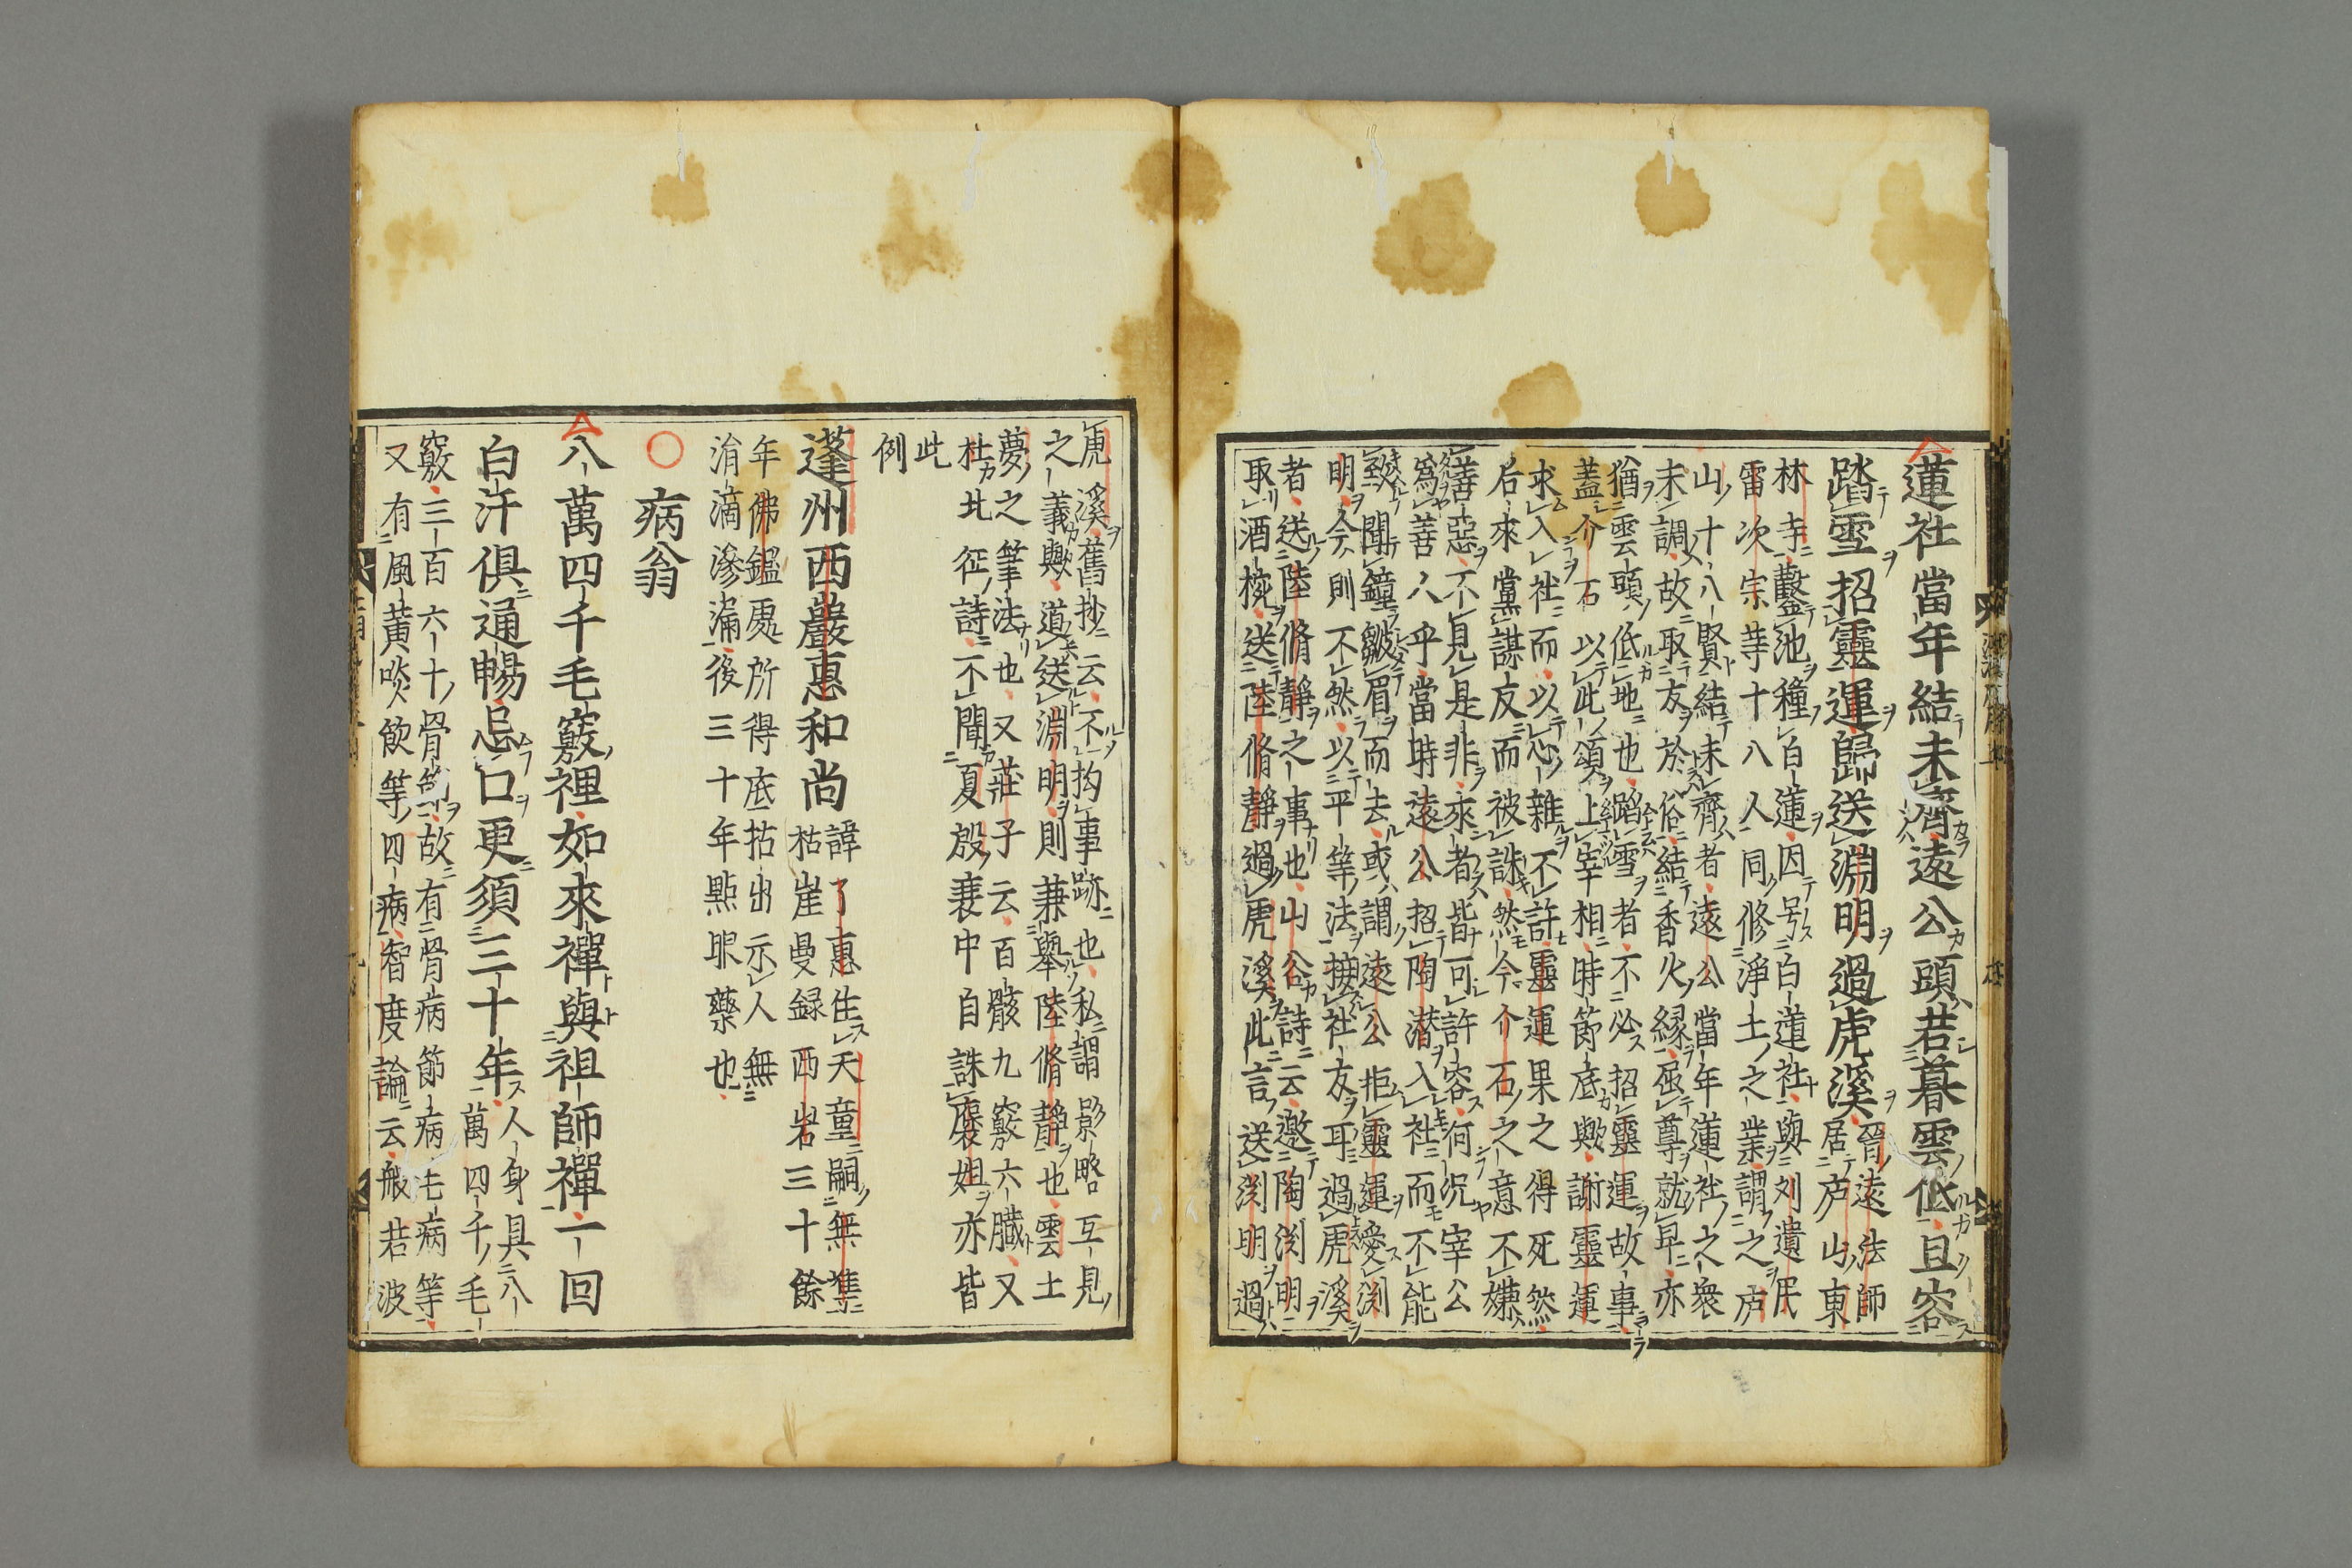 蓮社當年結未齊遠公頭若暮雲低且容
踏雪招靈運歸送淵明過虎溪
晉遠法師
居庐山東
林寺鑿池種白蓮因号白蓮社與刘遺民
雷次宗等十八人同修淨土之業謂之庐
山十八賢結未齊者遠公當年蓮社之衆
未調故取友於俗結香火緣屈尊就卑亦
猶雲頭低地也蹈雪者不必招靈運故事
蓋介石以此頌上宰相時節底歟謝靈運
求入社而以心雜不許靈運果之得死然
后來黨謀反而被誅然今介石之意不嫌
善惡不見是非來者皆可許容何況宰公
爲善人乎當時遠公招陶潜入社而不能
致聞鐘皺眉而去或謂遠公拒靈運愛渕
明今則不然以平等法接社友耳過虎溪
者送陸脩靜之事也山谷詩云邀陶渕明
取酒椀送陸脩靜過虎溪此言送渕明過
虎溪舊抄云不拘事跡也私謂影略互見
之義歟道送淵明則兼舉陸脩靜也雲土
夢之筆法也又莊子云百骸九竅六臓又
杜北征詩不聞夏殷衰中自誅褒妲亦皆
此
例
蓬州西巖惠和尚
諱了惠住天童嗣無準
枯崖曼録西岩三十餘
年佛鑑處所得底拈出示人無
涓滴滲漏後三十年點眼藥也
○病翁
八萬四千毛竅裡如來禪與祖師禪一回
白汗俱通暢忌口更須三十年
人身具八
萬四千毛
竅三百六十骨節故有骨病節病毛病等
又有風黃啖飲等四病智度論云般若波